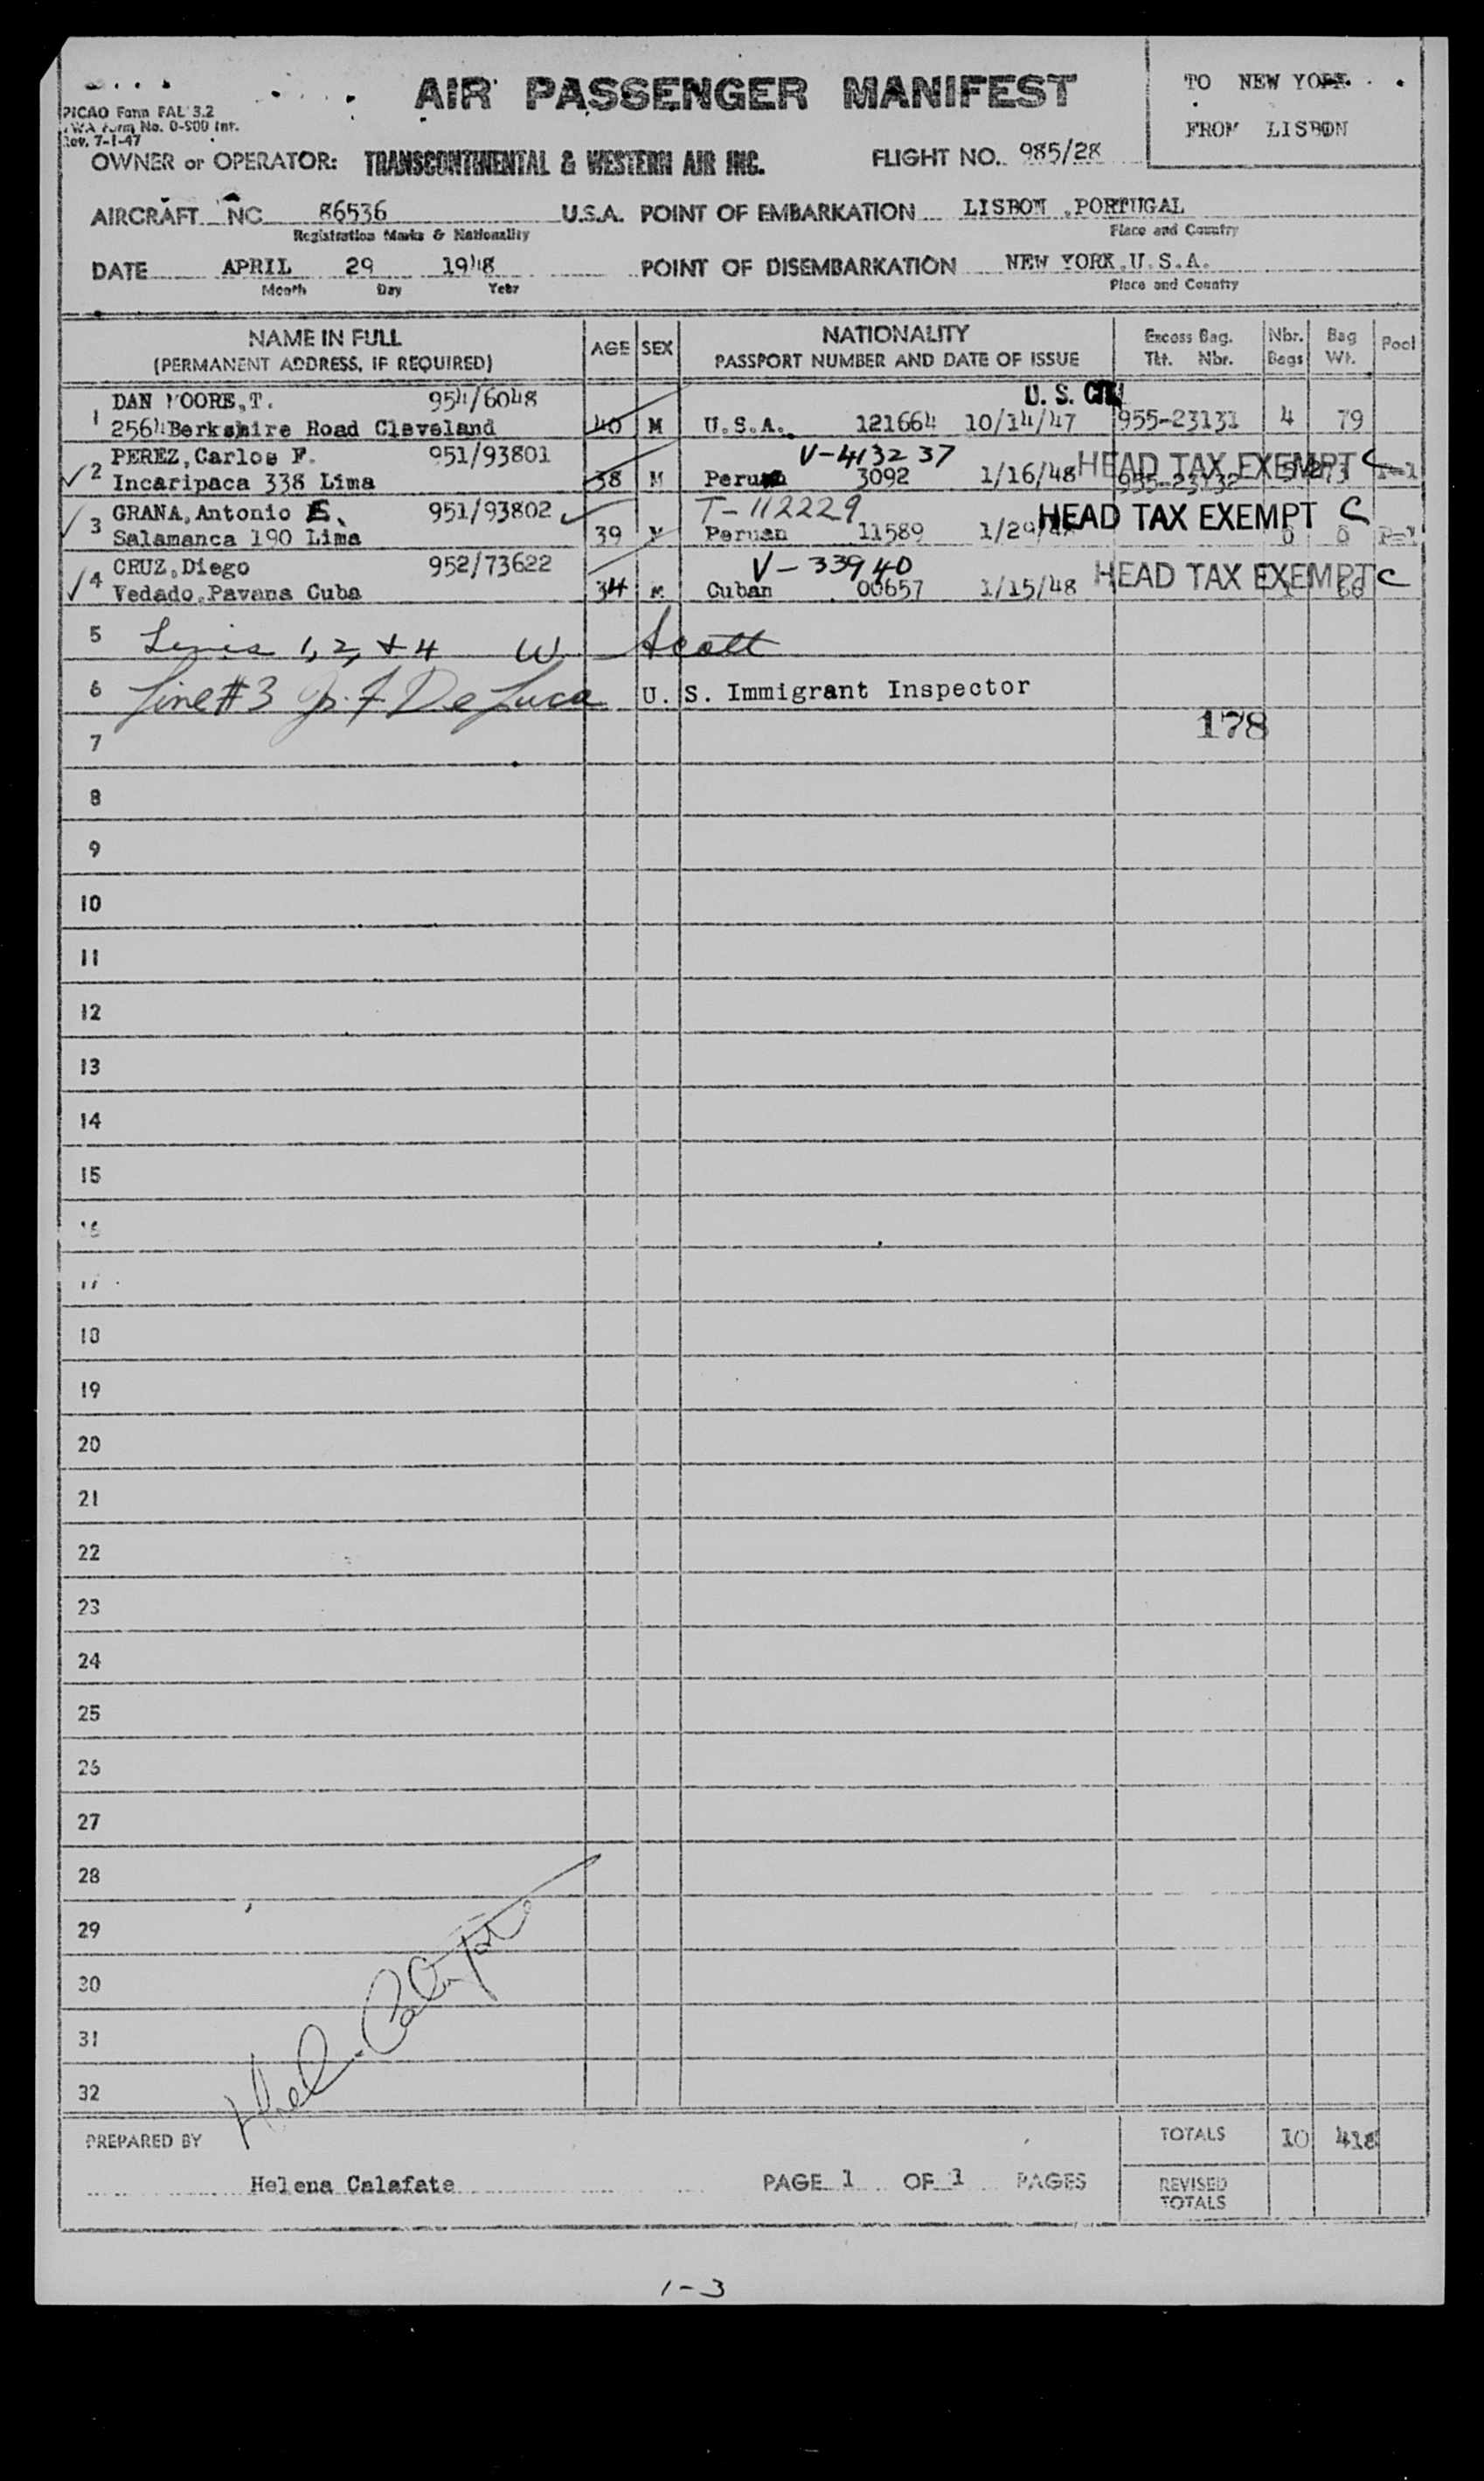 AIR PASSENGER MANIFEST
TO NEW YORK
FROM LISBON
PICAO Form FAL 3.2
TWA Form No. O-900 Int.
Rev. 7-1-47
OWNER or OPERATOR: TRANSCONTINENTAL & WESTERN AIR INC. FLIGHT NO. 985/28
AIRCRAFT NC 86536 U.S.A. POINT OF EMBARKATION LISBON ,PORTUGAL
Registration Marks & Nationality Place and Country
DATE APRIL 29 1948 POINT OF DISEMBARKATION NEW YORK,U.S.A.
Month Day Year Place and Country
NAME IN FULL (PERMANENT ADDRESS, IF REQUIRED) AGE SEX NATIONALITY PASSPORT NUMBER AND DATE OF ISSUE Excess Bag. Tkt. Nbr. Nbr. Bags Bag Wt. Pool
DAN MOORE,T. 954/6048 U. S. CIT
1 2564 Berkshire Road Cleveland 40 M U.S.A. 121664 10/14/47 955-23131 4 79
PEREZ,Carlos F. 951/93801 V-413237 HEAD TAX EXEMPT C
2 Incaripaca 338 Lima 38 M Peruan 3092 1/16/48 955-23132 5 273 P-1
GRANA,Antonio E. 951/93802 T-112229 HEAD TAX EXEMPT C
3 Salamanca 190 Lima 39 M Peruan 11589 1/29/48 0 0 P-1
CRUZ,Diego 952/73622 V-33940 HEAD TAX EXEMPT C
4 Vedado,Pavana Cuba 34 M Cuban 00657 1/15/48 1 66
5 Lines 1, 2, + 4 W Scott
6 Line #3 Jr. F DeLuca U. S. Immigrant Inspector
178
7
8
9
10
11
12
13
14
15
16
17
18
19
20
21
22
23
24
25
26
27
28
29
30
31
32
Hel. Calafate
PREPARED BY TOTALS 10 418
Helena Calafate PAGE 1 OF 1 PAGES REVISED TOTALS
1-3